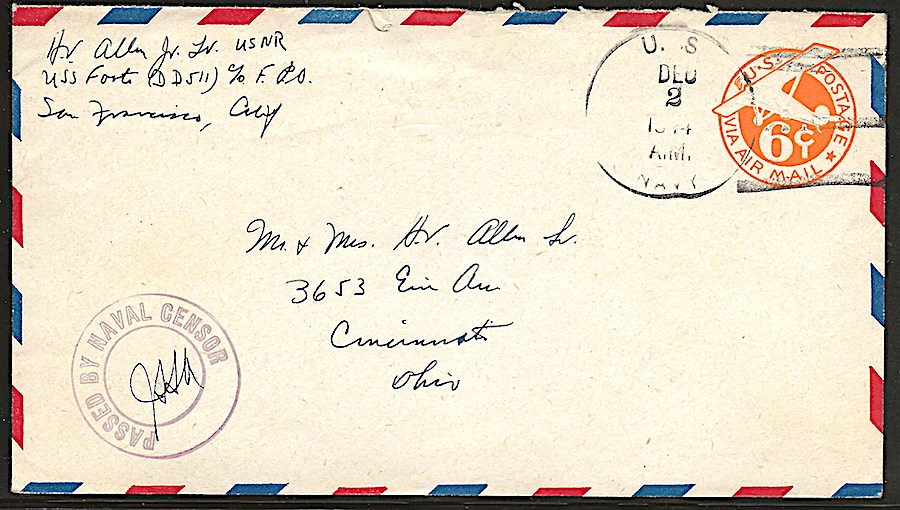 H.V. Allen Jr. Lt. USNR
USS Foote (DD511) c/o F.P.O.
San Francisco, Calif
U. S.
DEC
2
1944
A.M.
NAVY
U.S. POSTAGE
6¢
VIA AIR MAIL
Mr. & Mrs. H.V. Allen Sr.
3653 Erie Ave
Cincinnati
Ohio
PASSED BY NAVAL CENSOR